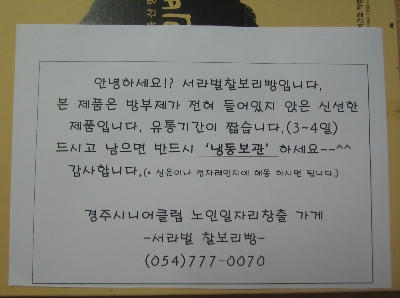 안녕하세요!? 서라벌찰보리빵입니다.
본 제품은 방부제가 전혀 들어있지 않은 신선한
제품입니다. 유통기간이 짧습니다.(3~4일)
드시고 남으면 반드시 '냉동보관' 하세요~~^^
감사합니다.(* 실온이나 전자레인지에 해동 하시면 됩니다.)
경주시니어클럽 노인일자리창출 가게
-서라벌 찰보리빵-
(054)777-0070